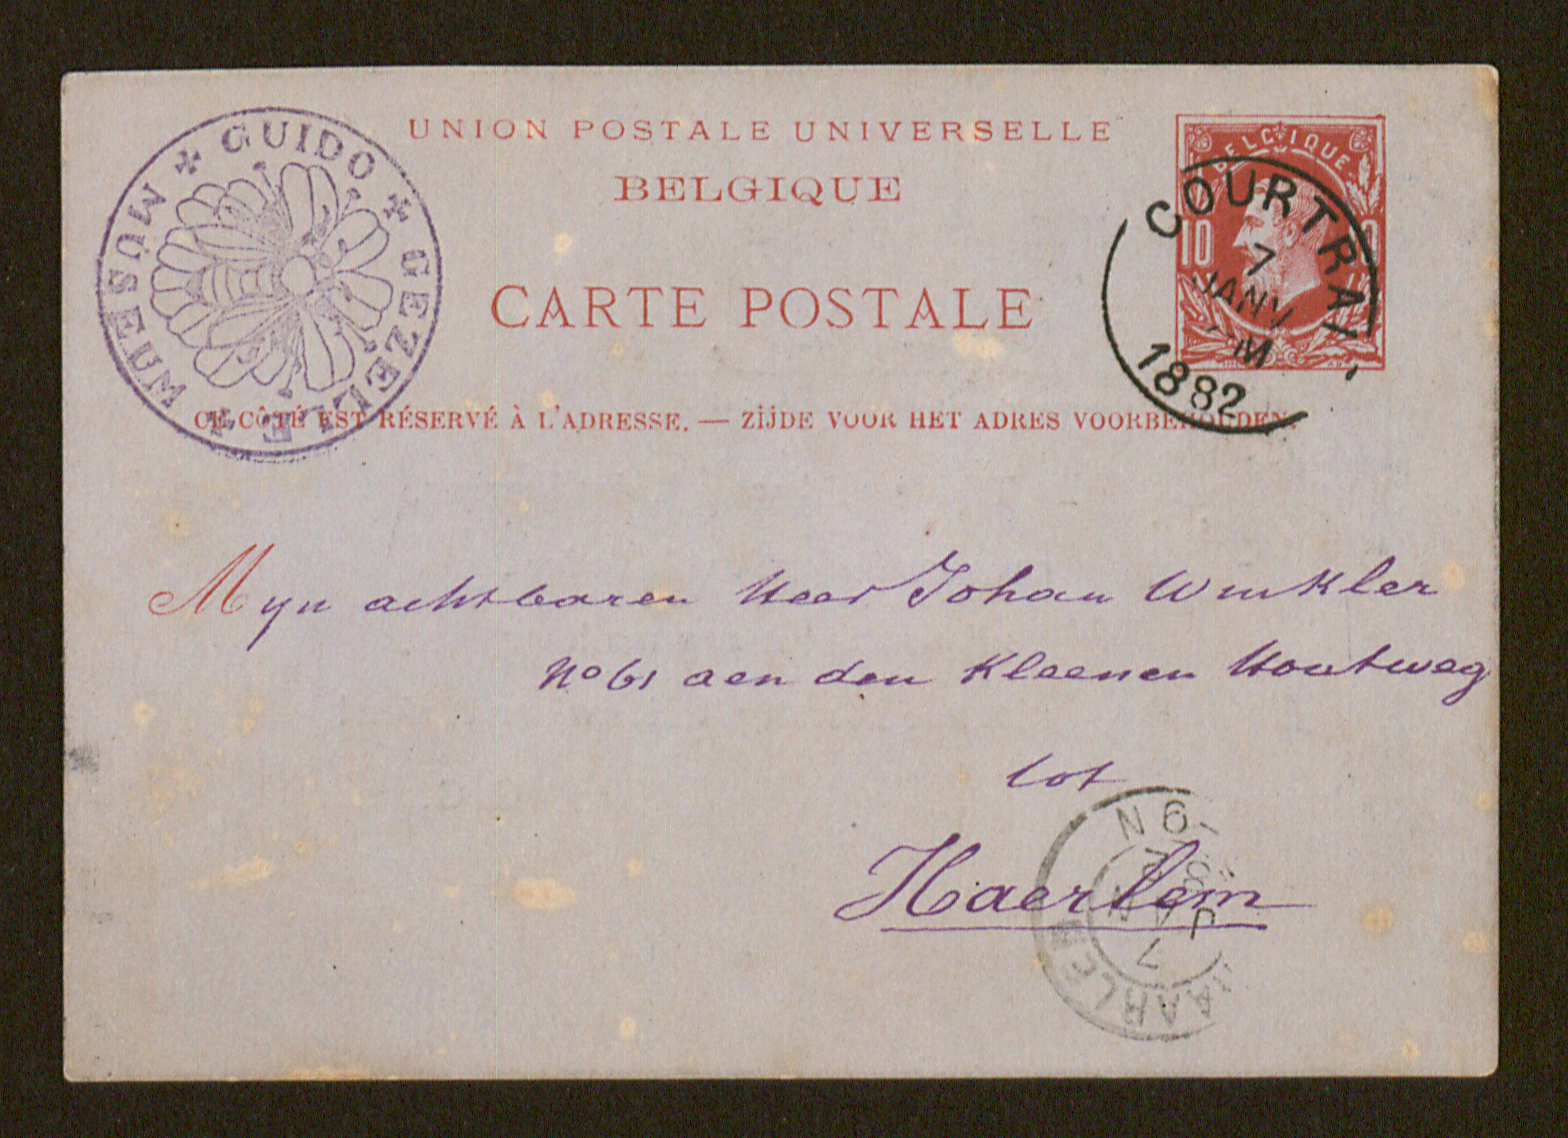 MUSEUM GUIDO GEZELLE
UNION POSTALE UNIVERSELLE
BELGIQUE
CARTE POSTALE
BELGIQUE
10
COURTRAI
7
JANV
M
1882
CE CÔTÉ EST RÉSERVÉ À L'ADRESSE. — ZIJDE VOOR HET ADRES VOORBEHOUDEN.
Myn achtbaren Heer Johan Winkler
No 61 aen den Kleenen Houtweg
tot
Haerlem
HAARLEM
7
JAN
82
6N